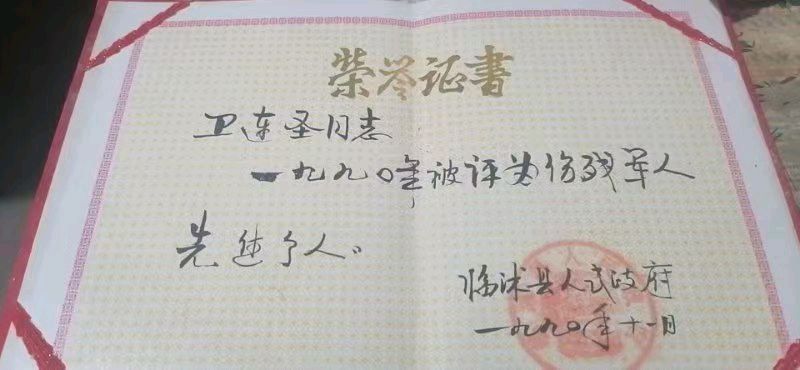 荣誉证书
卫连圣同志
一九九〇年被评为伤残军人
先进个人。
临沭县人民政府
一九九〇年十一月